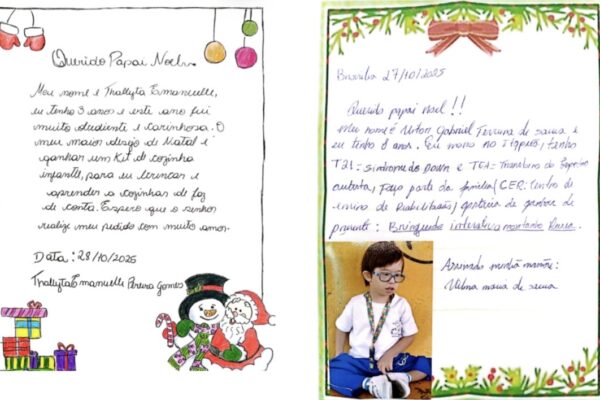 Querido Papai Noel.
Meu nome é Thallyta Emanuelle,
eu tenho 3 anos e este ano fui
muito obediente e carinhosa. O
meu maior desejo de Natal é
ganhar um Kit de cozinha
infantil, para eu brincar e
aprender a cozinhar de faz
de conta. Espero que o senhor
realize meu pedido com muito amor.
Data: 28/10/2025
Thallyta Emanuelle Pereira Gomes
Brasília 27/10/2025
Querido papai noel!!
meu nome é Gabriel de
eu tenho 8 anos. Eu moro no Itapoã, tenho
T21: síndrome de Down e TEA: Transtorno do Espectro
autista, Faço parte da família CER: Centro de
ensino de Reabilitação, gostaria de ganhar de
presente: Brinquedo interativo
Assinado minha mamãe:
maria de